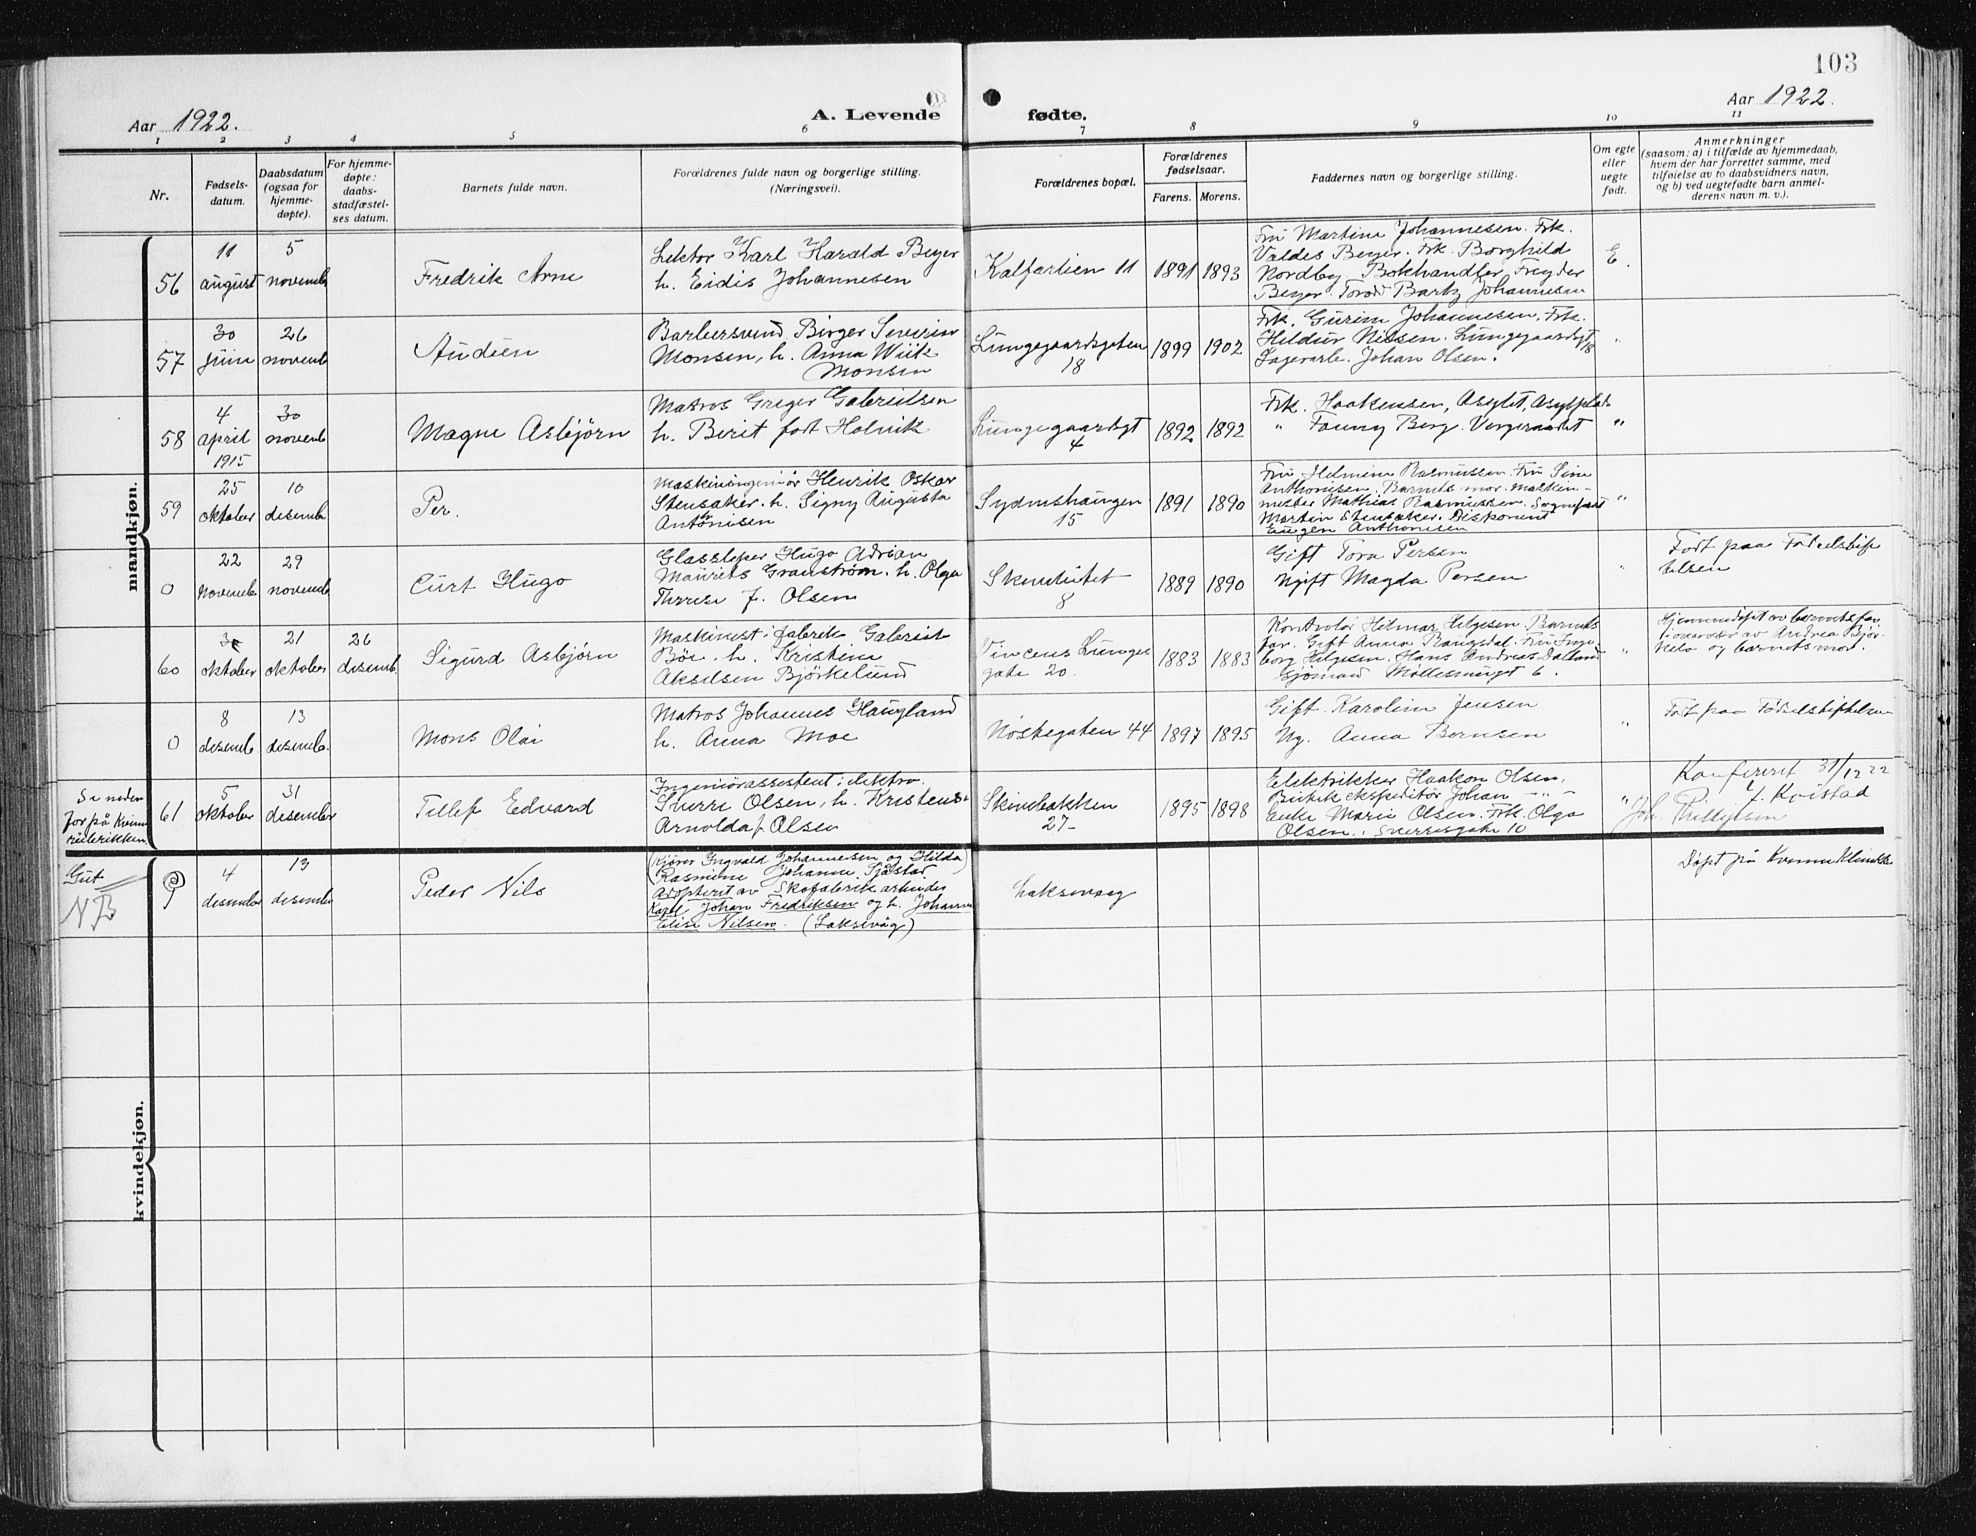 103
Aar 1922.
A. Levende fødte.
Aar 1922.
1 2 3 4 5 6 7 8 9 10 11
Nr.
Fødsels-
datum.
Daabsdatum
(ogsaa for
hjemme-
døpte).
For hjemme-
døpte:
daabs-
stadfæstel-
ses datum.
Barnets fulde navn.
Forældrenes fulde navn og borgerlige stilling.
(Næringsvei).
Forældrenes bopæl.
Forældrenes
fødselsaar.
Farens. Morens.
Faddernes navn og borgerlige stilling.
Om egte
eller
uegte
født.
Anmerkninger
(saasom: a) i tilfælde av hjemmedaab,
hvem der har forrettet samme, med
tilføielse av to daabsvidners navn,
og b) ved uegtefødte barn anmel-
derens navn m. v.).
mandkjøn.
56
11
august
5
novemb
Fredrik Arne
Lektor Karl Harald Beyer
h. Eidis Johannesen
Kalfarlien 11
1891 1893
Fru Martine Johannesen. Frk.
Valdes Beyer. Frk. Borghild
Nordby. Bokhandler Freyder
Beyer. Torodd Bartz Johannesen
E.
57
30
juni
26
novemb
Audun
Barbersvend Birger Severin
Monsen, h. Anna Wiik
Monsen
Lungegaardsgaten
18
1899 1902
Frk. Gurine Johannesen. Frk.
Hildur Nilsen. Lungegaardsgt 18
Lagerarb. Johan Olsen.
"
58
4
april
1915
30
novemb
Magne Asbjørn
Matros Greger Gabrielsen
h. Berit født Holvik
Lungegaardsgt
4
1892 1892
Frk. Haakensen, Asylet, Asylplads
" Fanny Berg. Vergeraadet
"
59
25
oktober
10
desemb
Per.
Maskiningeniør Henrik Oskar
Stensaker. h. Signy Augusta
Antonisen
Sydneshaugen
15
1891 1890
Fru Helmine Rasmussen. Fru Sina
Anthonisen. Barnets mor. Maskin-
mester Mathias Rasmussen. Sogneprest
Martin Stensaker. Diskonent
Eugen Anthonisen
"
0
22
novemb
29
novemb
Curt Hugo
Glassliper Hugo Adrian
Maurits Granstrøm. h. Olga
Therese f. Olsen
Skivebakken
8
1889 1890
Gift Tora Persen
Ugift Magda Persen
"
Født paa Fødselstif
telsen
60
oktober
21
oktober
26
desemb.
Sigurd Asbjørn
Maskinist i fabrik Gabriel
Böe. h. Kristine
Akselsen Bjørkelund
Vincens Lunges
gate 20.
1883 1883
Kontrolør Hilmar Helgesen Barnets
far. Gift Anna Rangsdal. Fru Inge-
borg Helgesen. Hans Andreas Dalland
Sjømand Møllesmuget 6.
"
Hjemmedøpt av barnets far
i overvær av Andrea Bjør-
kelo og barnets mor.
0
8
desemb
13
desemb.
Mons Olai
Matros Johannes Haugland
h. Anna Moe
Nøstegaten 44
1897 1895
Gift. Karoline Jensen
Ug. Anna Bernsen
"
Født paa Fødselstiftelsen
Se neden
for på Kvinne
rubrikken
61
5
oktober
31
desember
Tellef Edvard
Ingeniørassistent i elektro.
Sverre Olsen, h. Kristense
Arnolda f. Olsen
Skivebakken
27-
1895 1898
Elektrikker Haakon Olsen.
Butikekspeditør Johan - " -
Enke Marie Olsen. Frk. Olga
Olsen. Sverresgate 10
"
Konfereret 31/12 22
f. Kvistad
Joh.
kvindekjøn.
Gut
NB
4
desember
13
desember
Peder Nils
(Kjører Ingvald Johannesen og Hilda)
(Rasmine Johanne Sjøstad
adoptert av Skofabrikarbeider
Karl Johan Fredriksen og h. Johanne
Elise Nilsen. (Laksevåg)
Laksevaag
Døpt på Kvinneklinikk